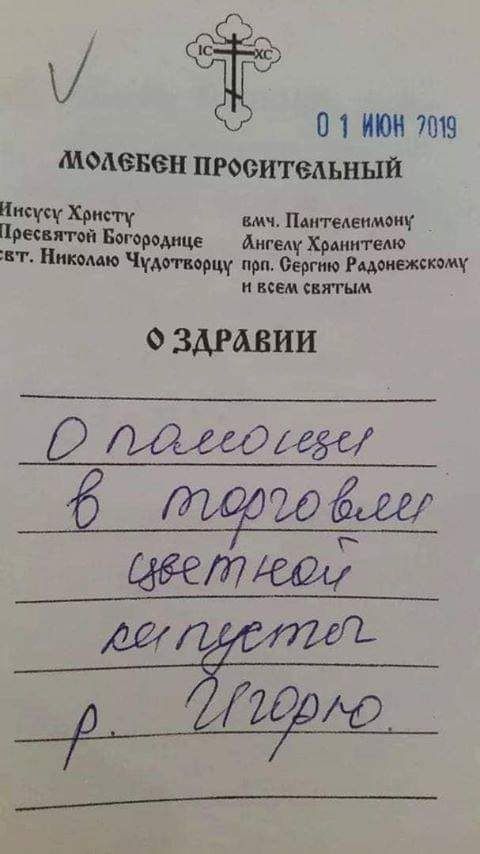 IC ХС
01 ИЮН 2019
МОЛЕБЕН ПРОСИТЕЛЬНЫЙ
Иисусу Христу
Пресвятой Богородице
свт. Николаю Чудотворцу
вмч. Пантелеимону
Ангелу Хранителю
прп. Сергию Радонежскому
и всем святым
О ЗДРАВИИ
О помощи
в торговли
цветной
капусты
р. Игорю.